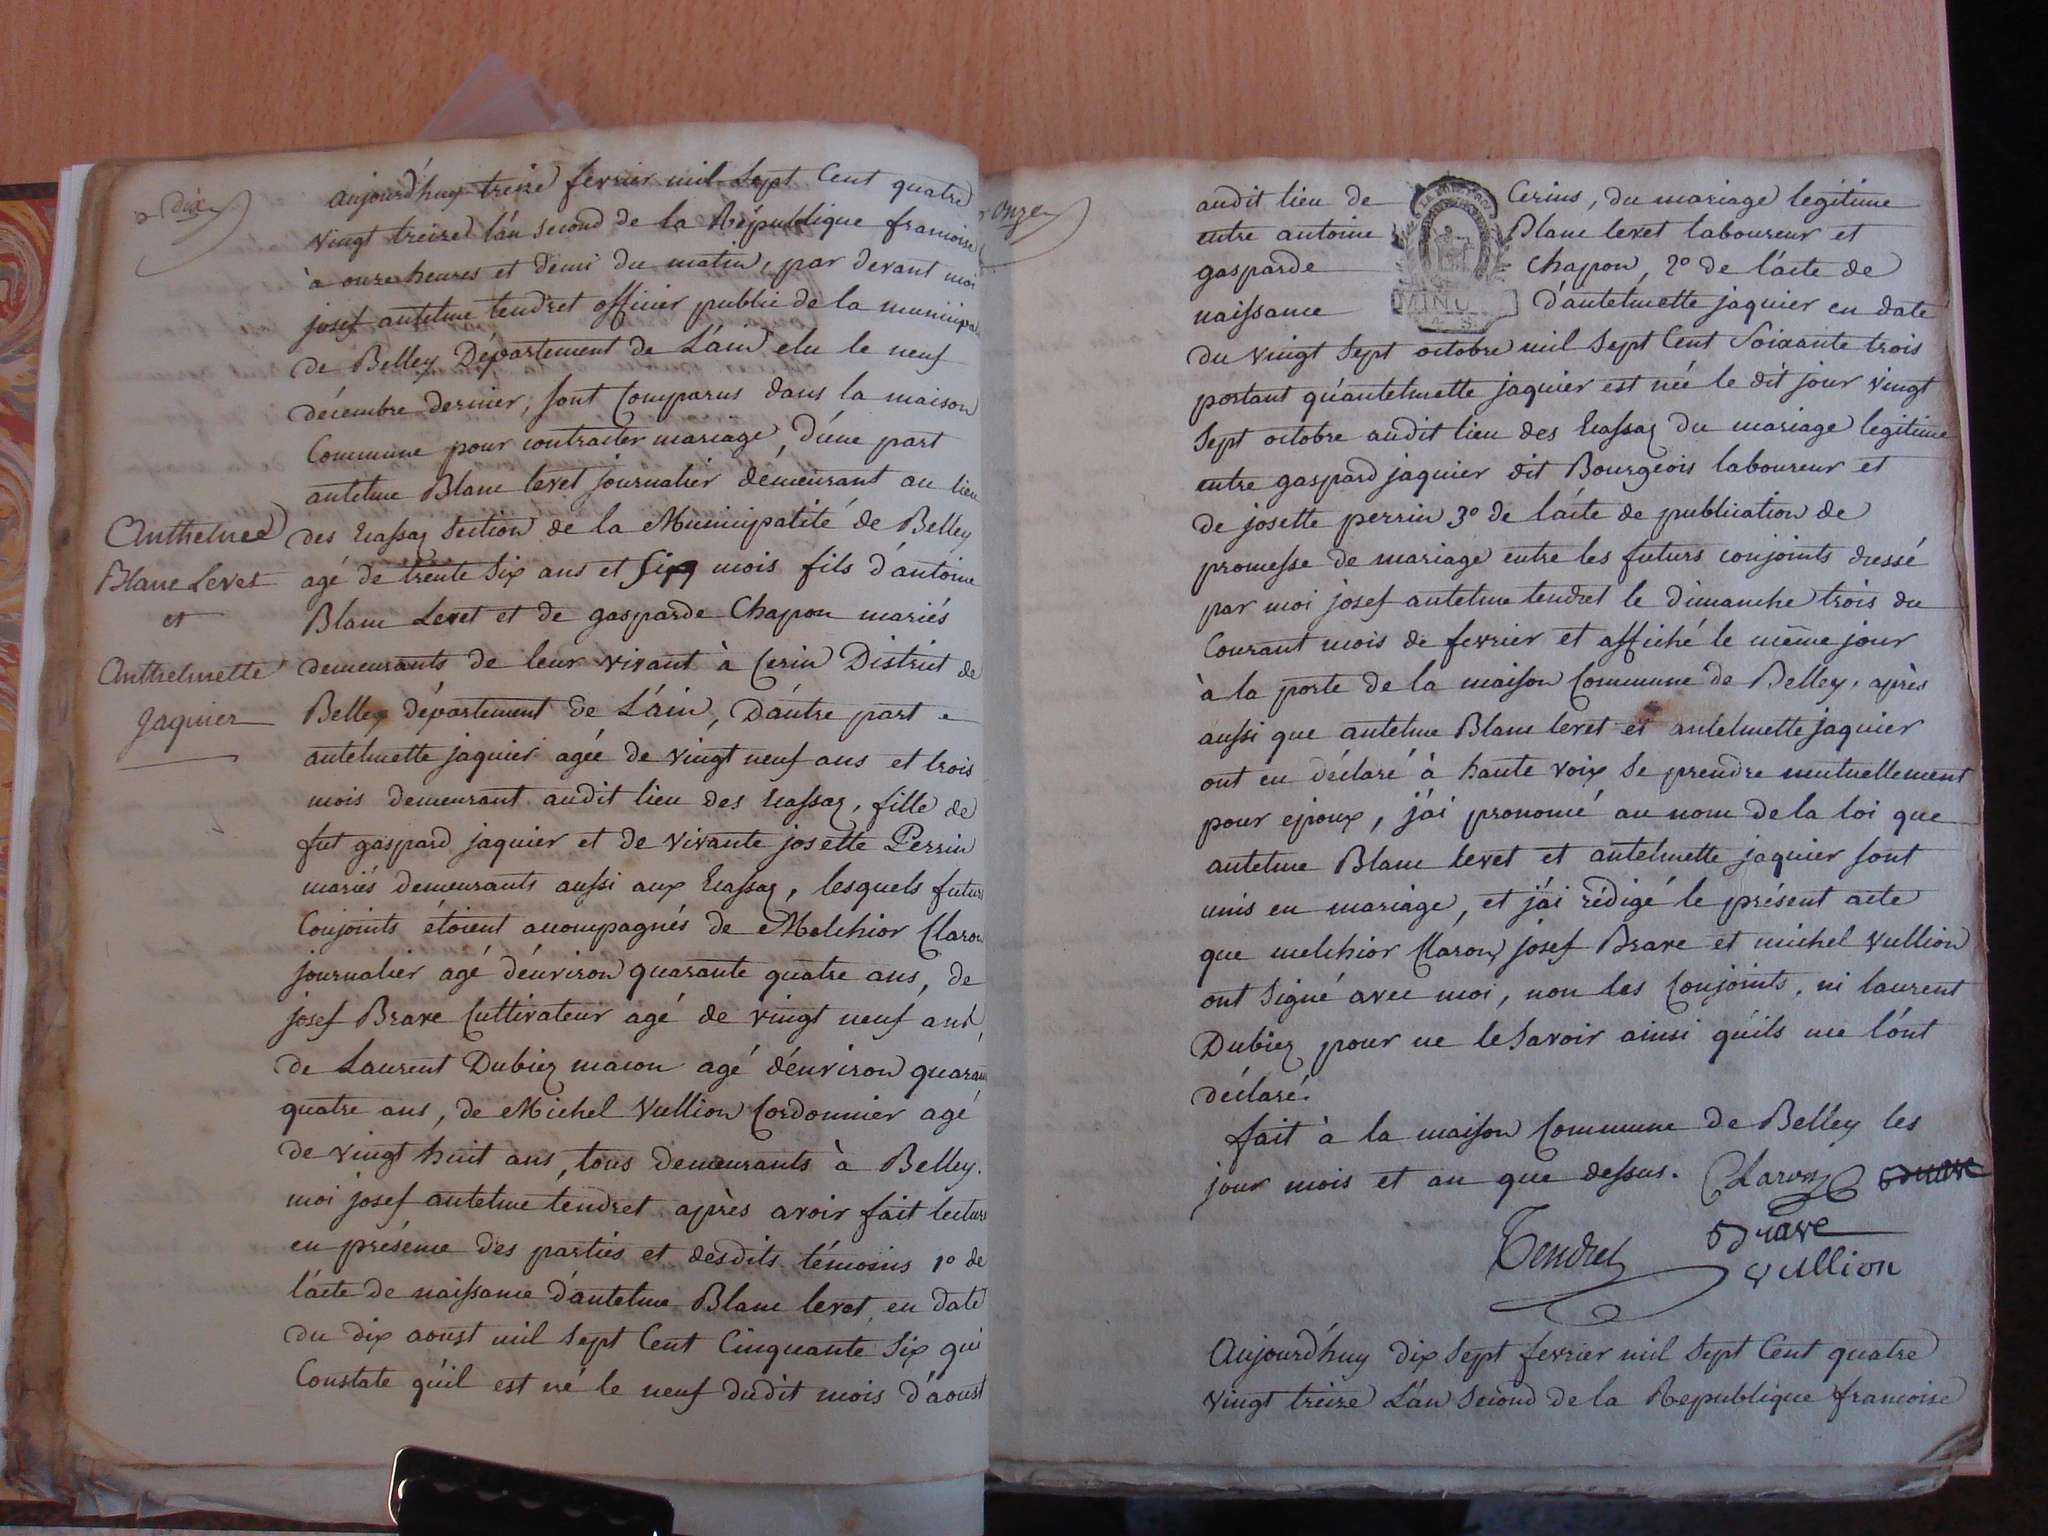 dix
aujourd'huy treize fevrier mil sept Cent quatre
vingt treize l'an second de la République francoise
à onze heures et demi du matin, par devant moi
josef antelme tendret officier public de la municipa
de Belley Département de L'ain elu le neuf
décembre dernier, sont Comparus dans la maison
Commune pour contracter mariage, d'une part
antelme Blanc levet journalier demeurant au lieu
des Ecassaz Section de la Municipalité de Belley
agé de trente six ans et six mois fils d'antoine
Blanc Levet et de gasparde Chapon mariés
demeurants de leur vivant à Cerin District de
Belley département de L'ain, D'autre part
antelmette jaquier agée de vingt neuf ans et trois
mois demeurant audit lieu des Ecassaz, fille de
fut gaspard jaquier et de vivante josette Perrin
mariés demeurants aussi aux Ecassaz, lesquels futurs
Conjoints étoient acompagnés de Melchior Claron
journalier agé d'environ quarante quatre ans, de
josef Brave Cultivateur agé de vingt neuf ans,
de Laurent Dubiez macon agé d'environ quaran
quatre ans, de Michel Vullion Cordonnier agé
de vingt huit ans, tous demeurants à Belley.
moi josef antelme tendret après avoir fait lecture
en présence des parties et desdits témoins 1º de
l'acte de naissance d'antelme Blanc levet, en date
du dix aoust mil sept Cent Cinquante six qui
Constate qu'il est né le neuf dudit mois d'aoust
Anthelme
Blanc Levet
et
Anthelmette
Jaquier
Onze
audit lieu de Cerins, du mariage légitime
entre antoine Blanc levet laboureur et
gasparde Chapon, 2º de l'acte de
naissance d'antelmette jaquier en date
MINU
du vingt sept octobre mil sept Cent Soixante trois
portant qu'antelmette jaquier est née le dit jour vingt
sept octobre audit lieu des Ecassaz du mariage legitime
entre gaspard jaquier dit Bourgeois laboureur et
de josette perrin 3º de l'acte de publication de
promesse de mariage entre les futurs conjoints dressé
par moi josef antelme tendret le dimanche trois du
Courant mois de fevrier et affiché le même jour
à la porte de la maison Commune de Belley, après
aussi que antelme Blanc levet et antelmette jaquier
ont eu déclaré à haute voix se prendre mutuellement
pour epoux, j'ai prononcé au nom de la loi que
antelme Blanc levet et antelmette jaquier sont
unis en mariage, et j'ai rédigé le présent acte
que melchior Claron, josef Brave et michel Vullion
ont signé avec moi, non les Conjoints, ni laurent
Dubiez pour ne le savoir ainsi qu'ils me l'ont
déclaré.
fait à la maison Commune de Belley les
jour mois et an que dessus. Claron
Brave
Tendret
vullion
Aujourd'huy dix sept fevrier mil sept Cent quatre
vingt treize L'an second de la République francoise